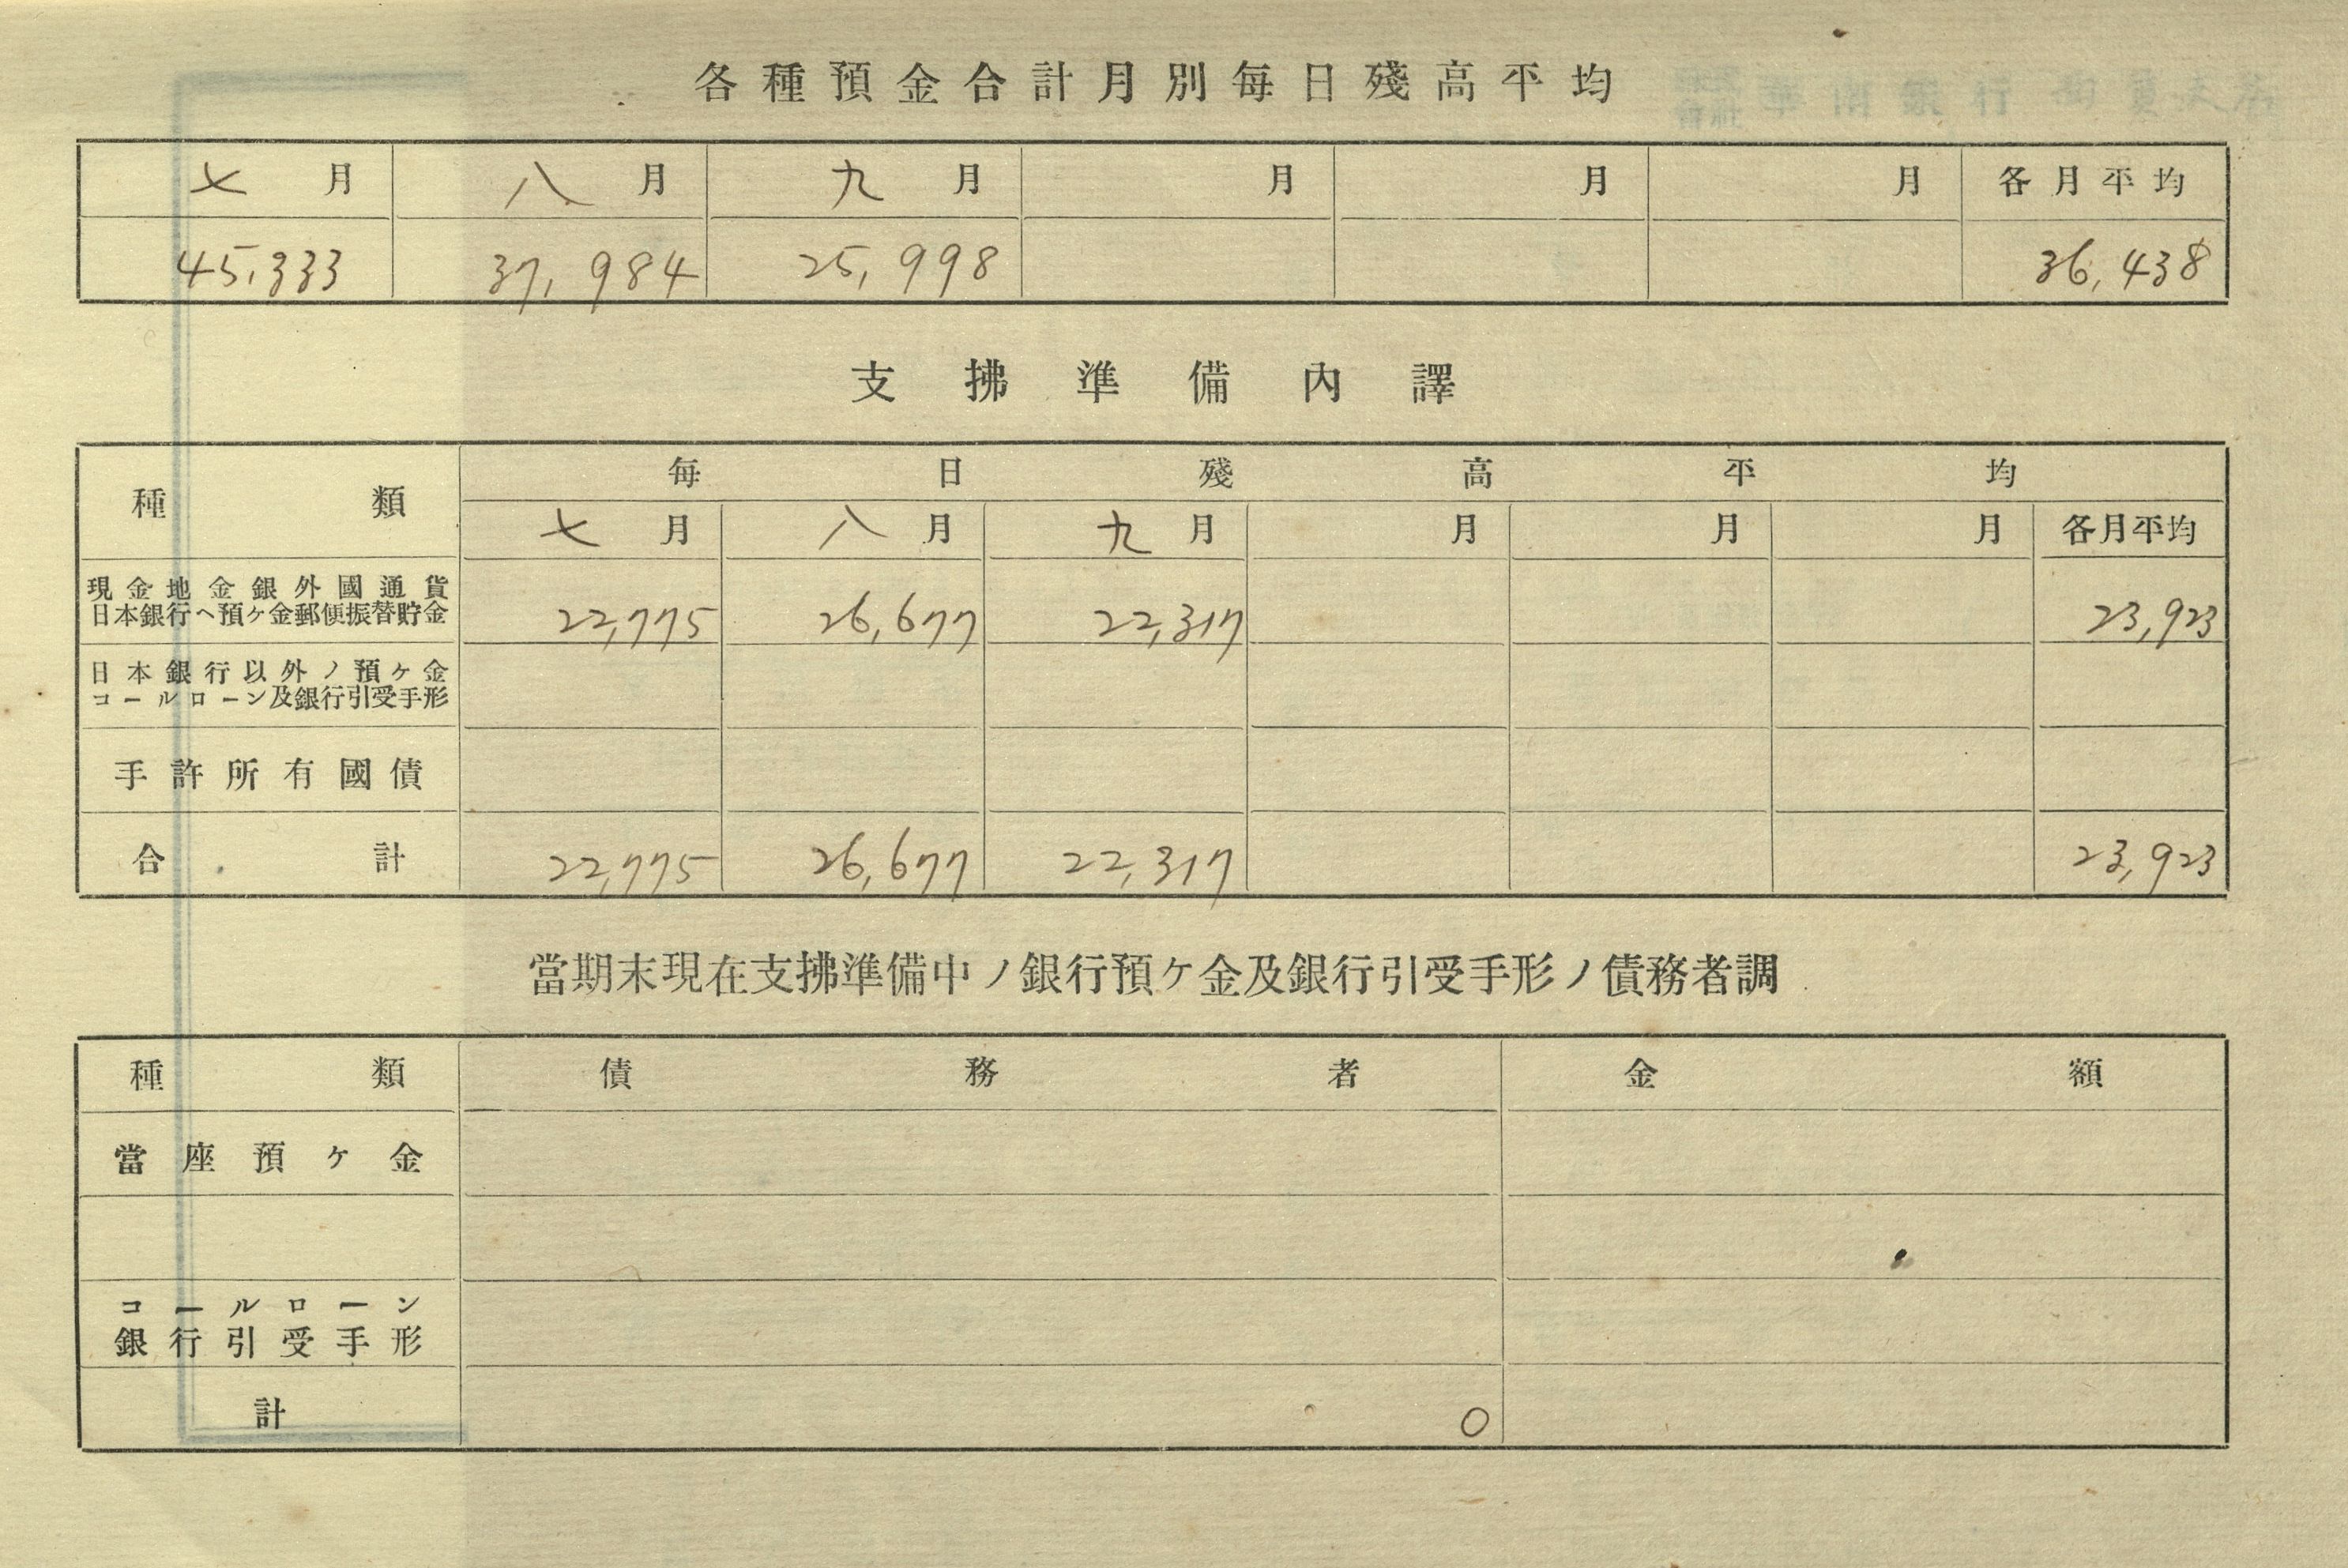 各種預金合計月別毎日殘高平均
七月 八月 九月 月 月 月 各月平均
45,333 37,984 25,998 36,438
支拂準備內譯
種類 毎日殘高平均
七月 八月 九月 月 月 月 各月平均
現金地金銀外國通貨
日本銀行ヘ預ケ金郵便振替貯金 22,775 26,677 22,317 23,923
日本銀行以外ノ預ケ金
コールローン及銀行引受手形
手許所有國債
合計 22,775 26,677 22,317 23,923
當期末現在支拂準備中ノ銀行預ケ金及銀行引受手形ノ債務者調
種類 債務者 金額
當座預ケ金
コールローン
銀行引受手形
計 0